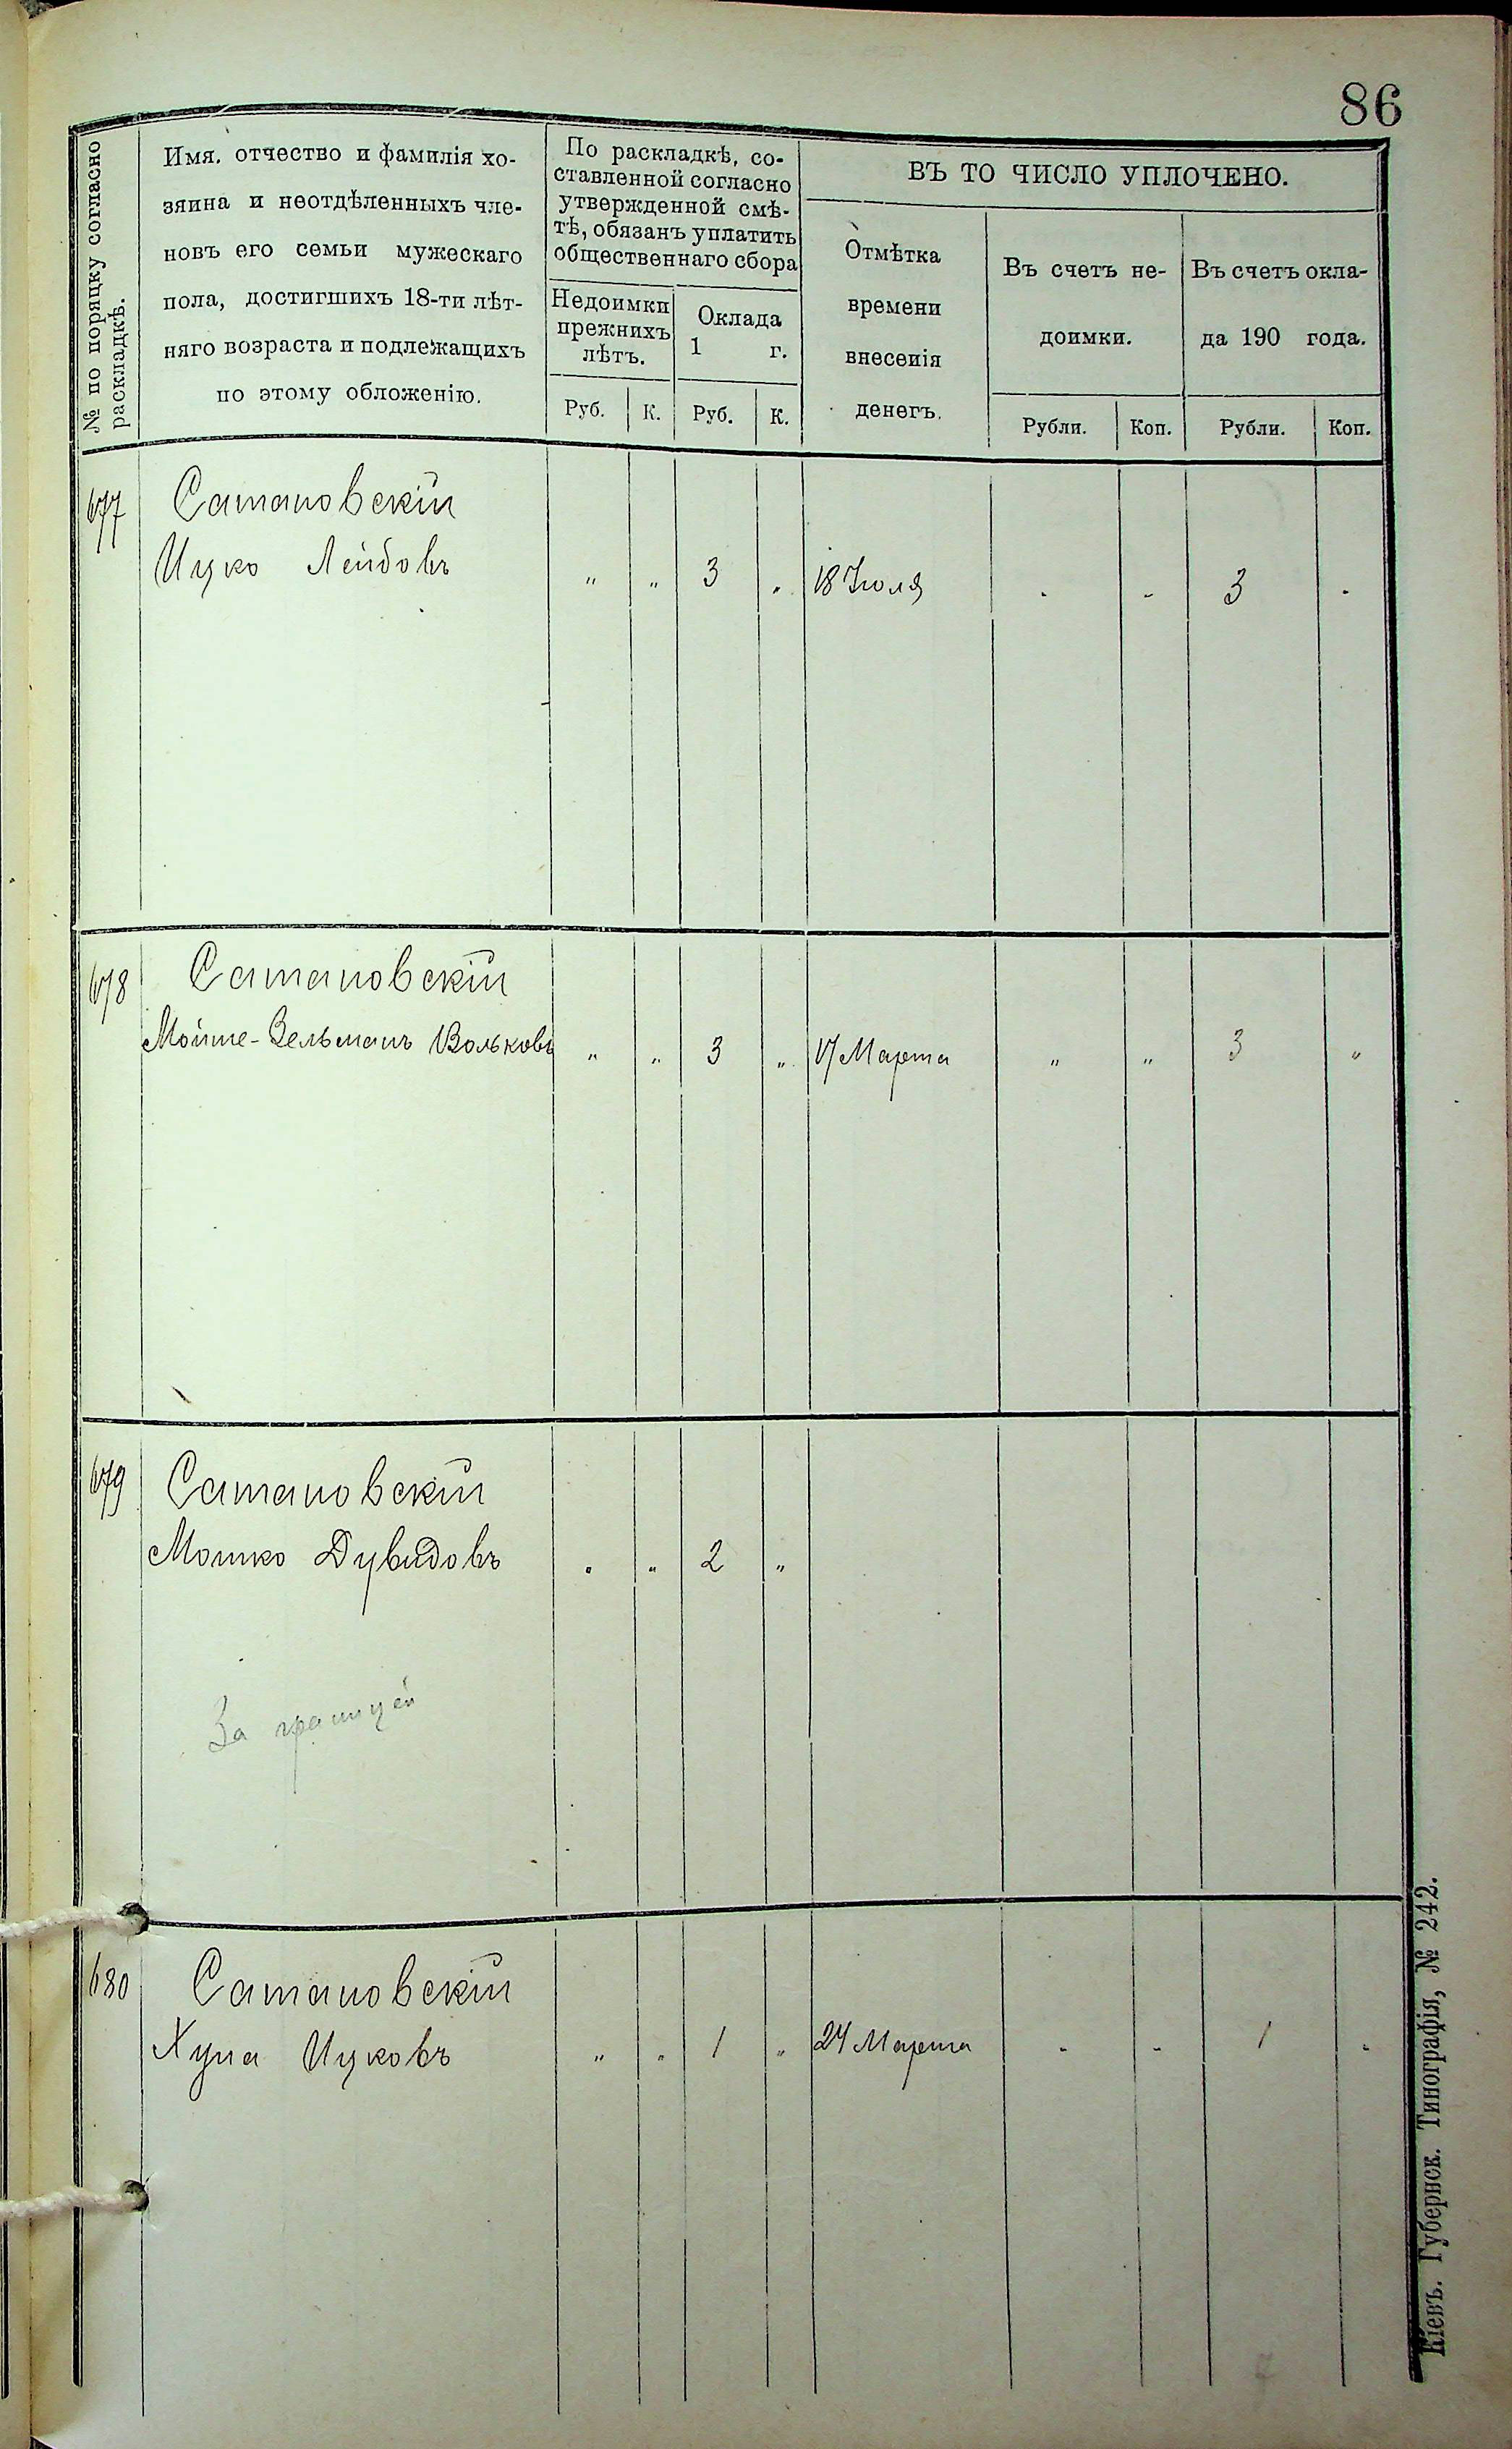 86
№ по порядку согласно
раскладкѣ.
Имя. отчество и фамилія хо-
зяина и неотдѣленныхъ чле-
новъ его семьи мужескаго
пола, достигшихъ 18-ти лѣт-
няго возраста и подлежащихъ
по этому обложенію.
По раскладкѣ, со-
ставленной согласно
утвержденной смѣ-
тѣ, обязанъ уплатить
общественнаго сбора
Недоимки
прежнихъ
лѣтъ.
Оклада
1 г.
Руб. К. Руб. К.
ВЪ ТО ЧИСЛО УПЛОЧЕНО.
Отмѣтка
времени
внесенія
денегъ.
Въ счетъ не-
доимки.
Въ счетъ окла-
да 190 года.
Рубли. Коп. Рубли. Коп.
677 Сатановскій
Ицко Лейбовъ " " 3 " 18 Іюля - - 3 -
678 Сатановскій
Мойше-Зельманъ Вольковъ " " 3 " 17 Марта " " 3 "
679 Сатановскій
Мошко Дувидовъ " " 2 "
За границей
680 Сатановскій
Хуна Ицковъ " " 1 " 24 Марта - - 1 -
Кіевъ. Губернск. Типографія, № 242.